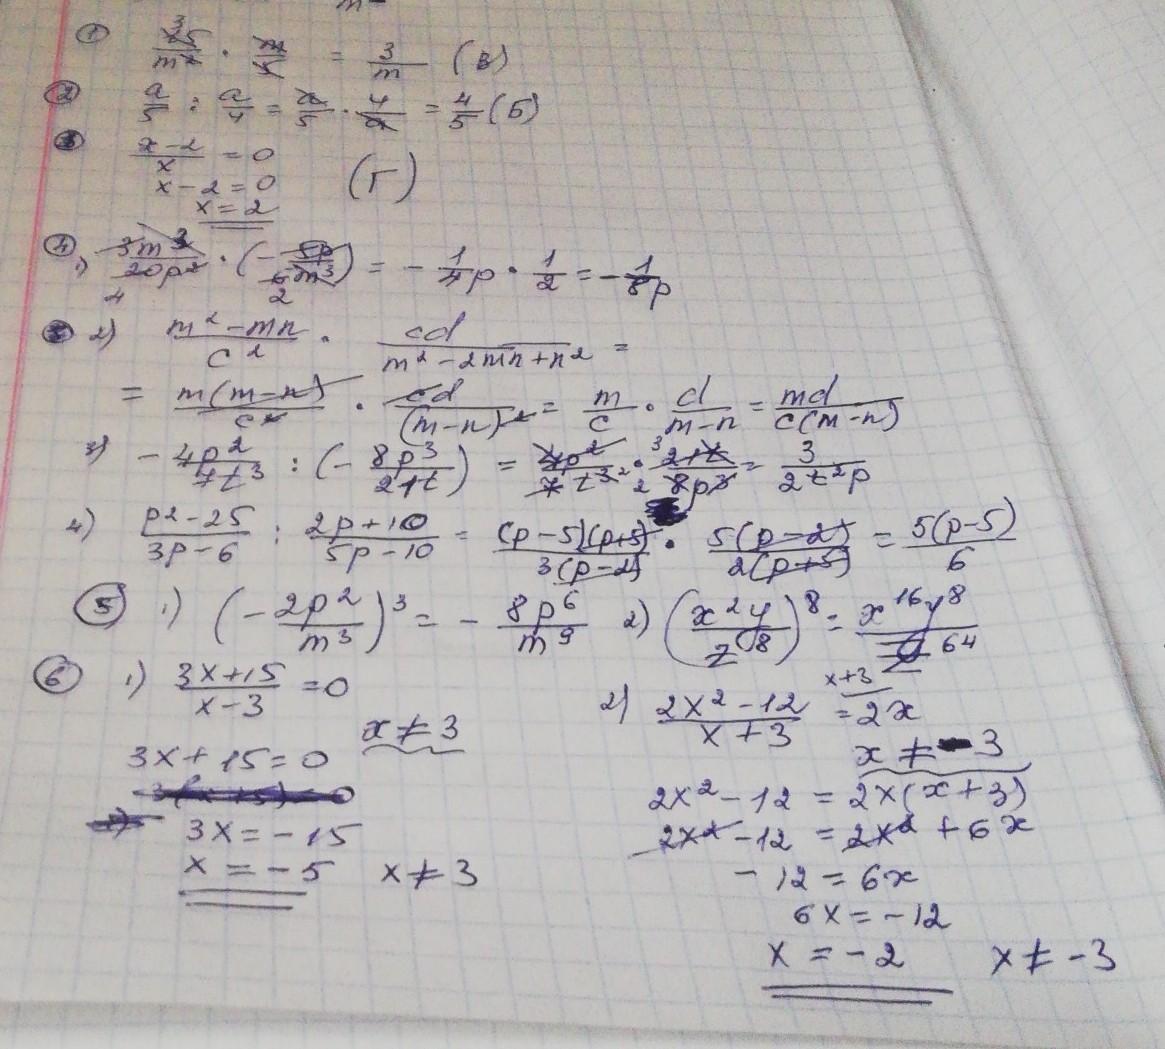 ① 15/m² · m/5 = 3/m (в)
② a/5 : a/4 = a/5 · 4/a = 4/5 (Б)
③ (x-2)/x = 0
x-2 = 0 (Г)
x = 2
④ 1) 3m³/20p² · (-5p/6m³) = -1/4p · 1/2 = -1/8p
2) (m²-mn)/c² · cd/(m²-2mn+n²) =
= m(m-n)/c² · cd/(m-n)² = m/c · d/(m-n) = md/c(m-n)
3) -4p²/7t³ : (-8p³/21t) = 4p²/7t³ · 21t/8p³ = 3/2t²p
4) (p²-25)/(3p-6) : (2p+10)/(5p-10) = (p-5)(p+5)/3(p-2) · 5(p-2)/2(p+5) = 5(p-5)/6
⑤ 1) (-2p²/m³)³ = -8p⁶/m⁹ 2) (x²y/z⁸)⁸ = x¹⁶y⁸/z⁶⁴
⑥ 1) (3x+15)/(x-3) = 0
x ≠ 3
3x + 15 = 0
3x = -15
x = -5 x ≠ 3
2) (2x²-12)/(x+3) = 2x x+3
x ≠ -3
2x²-12 = 2x(x+3)
2x²-12 = 2x²+6x
-12 = 6x
6x = -12
x = -2 x ≠ -3